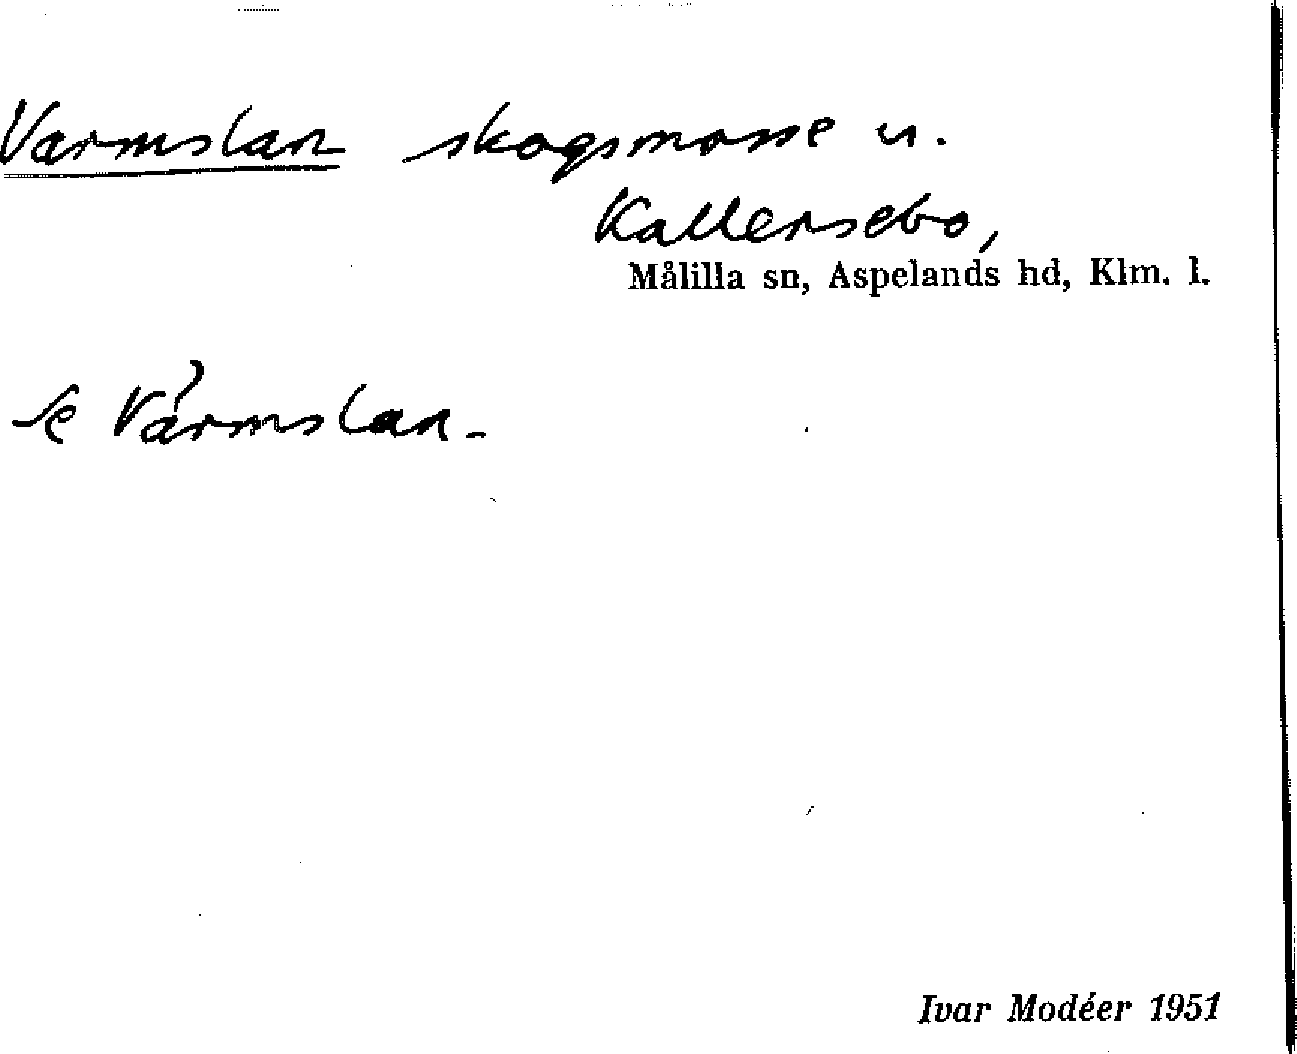 Varmslan skogsmosse u.
Kallersebo,
Målilla sn, Aspelands hd, Klm. l.
Se Vårmslan.
Ivar Modéer 1951